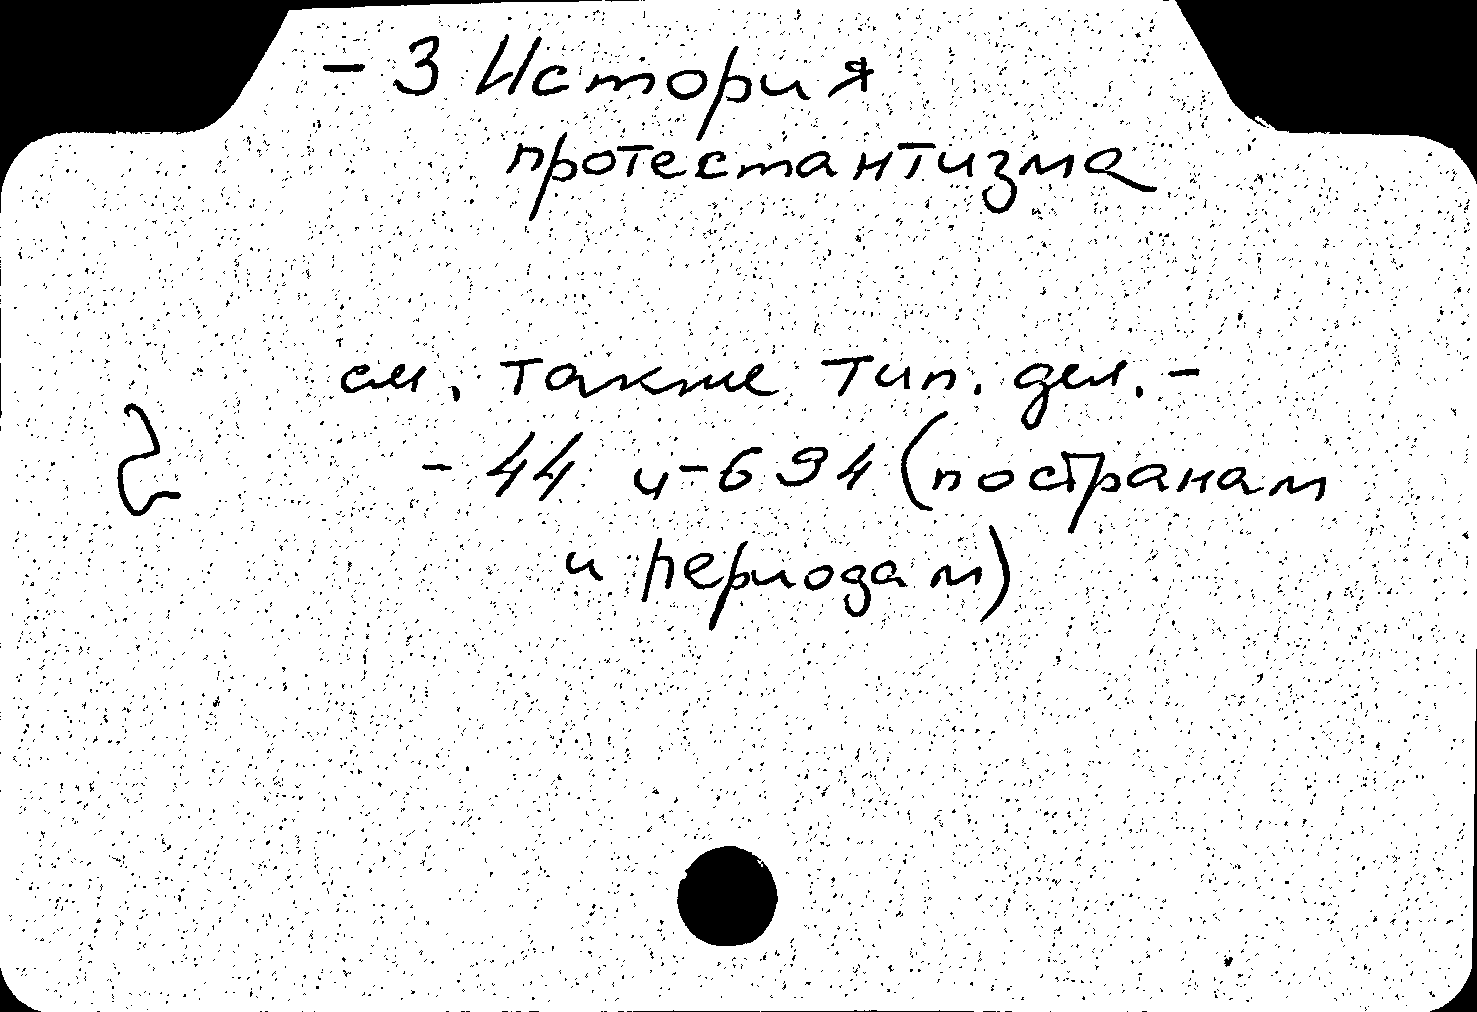 - 3 История
протестантизма
см. также тип. дел. -
- 44 и - 694 (по странам
и периодам)